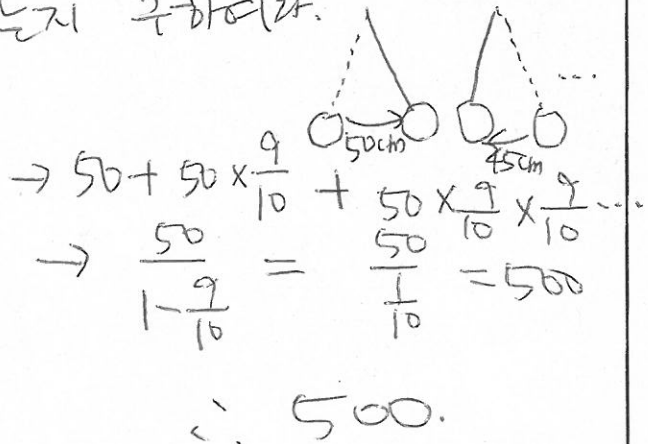 는지 구하여라.
50cm 45cm ...
→ 50 + 50 × 9/10 + 50 × 9/10 × 9/10 ...
→ 50/(1 - 9/10) = 50/(1/10) = 500
∴ 500.